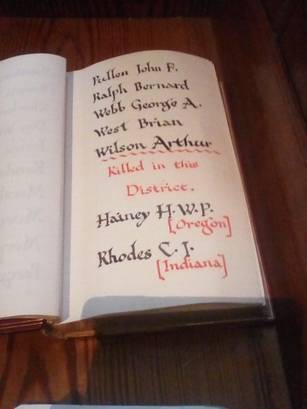 Pullen John F.
Ralph Bernard
Webb George A.
West Brian
Wilson Arthur
Killed in this
District.
Hainey H.W.P.
[Oregon]
Rhodes C.J.
[Indiana]